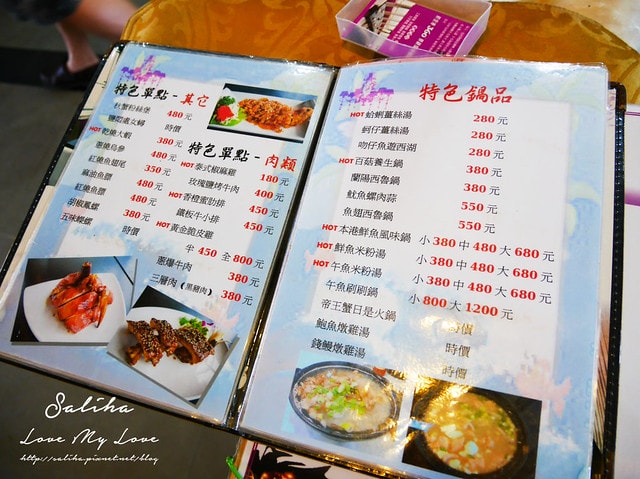 特色單點-其它
秋蟹粉絲煲 480元
鹽焗處女蟳 時價
HOT 乾燒大蝦 380元
蔥燒烏參 480元
紅燒魚翅尾 350元
麻油魚膘 480元
紅燒魚膘 480元
胡椒鳳螺 380元
五味螺 時價
特色單點-肉類
HOT 泰式椒麻雞 180元
玫瑰鹽烤牛肉 400元
HOT 香橙蜜肋排 450元
鐵板牛小排 450元
HOT 黃金脆皮雞
半 450 全 800元
蔥爆牛肉 380元
三層肉(黑豬肉) 380元
特色鍋品
HOT 蛤蜊薑絲湯 280元
蚵仔薑絲湯 280元
吻仔魚遊西湖 280元
HOT 百菇養生鍋 380元
蘭陽西魯鍋 380元
魷魚螺肉蒜 550元
魚翅西魯鍋 550元
HOT 本港鮮魚風味鍋 小 380 中 480 大 680元
HOT 鮮魚米粉湯 小 380 中 480 大 680元
HOT 午魚米粉湯 小 380 中 480 大 680元
午魚刷刷鍋 小 800 大 1200元
帝王蟹日是火鍋 時價
鮑魚燉雞湯 時價
錢鰻燉雞湯 時價
Saliha
Love My Love
http://saliha.pixnet.net/blog